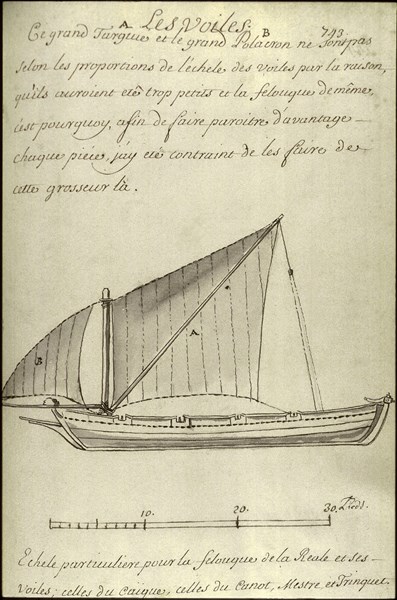 Les Voiles.
743.
A
B
Ce grand Targue et le grand Polacron ne sont pas
selon les proportions de l'échele des voiles par la raison,
qu'ils auroient eté trop petits et la felouque de même,
c'est pourquoy, afin de faire paroitre davantage
chaque piéce, j'ay eté contraint de les faire de
cette grosseur là.
A
B
10.
20.
30. Pieds.
Echele particuliere pour la felouque de la Reale et ses
Voiles; celles du Caique, celles du Canot, Mestre et Trinquet.